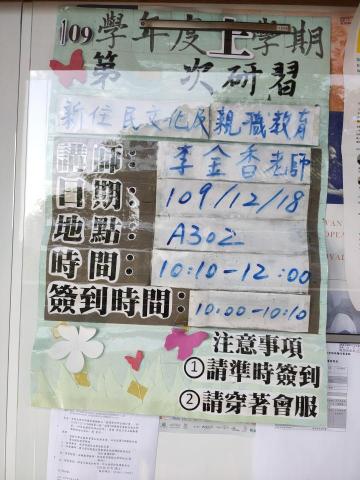 109學年度上學期
第 次研習
新住民文化及親職教育
講師:李金香老師
日期:109/12/18
地點:A302
時間:10:10-12:00
簽到時間:10:00-10:10
注意事項
①請準時簽到
②請穿著會服